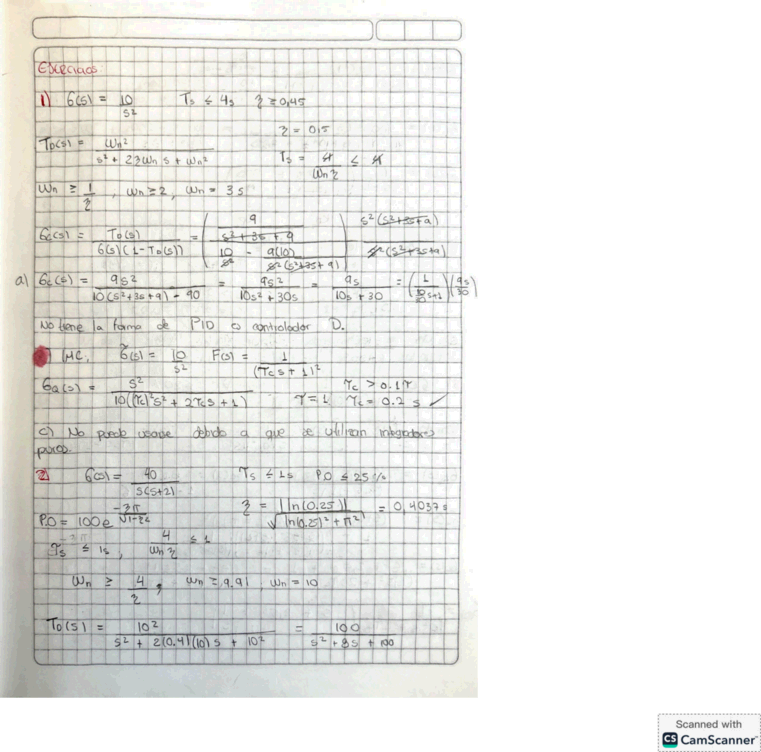 Ejercicios.
1) G(s) = 10/s² Ts ≤ 4s ξ ≥ 0,45
ξ = 0,5
To(s) = ωn² / (s² + 2ξωn s + ωn²) Ts = 4/(ωn ξ) ≤ 4
ωn ≥ 1/ξ , ωn ≥ 2, ωn = 3 s
Gc(s) = To(s) / (G(s)(1 - To(s))) = ( (9 / (s² + 3s + 9)) / (10/s² - 9(10)/(s²(s²+3s+9))) ) s²(s²+3s+9) / s²(s²+3s+9)
a) Gc(s) = 9s² / (10(s²+3s+9) - 90) = 9s² / (10s² + 30s) = 9s / (10s + 30) = (1 / (10/30 s+1)) (9s/30)
No tiene la forma de PID o controlador D.
IMC, G̃(s) = 10/s² F(s) = 1 / (τc s + 1)²
GQ(s) = s² / (10((τc)²s² + 2τcs + 1)) τ = 1 τc > 0.1τ
τc = 0.2 s ✓
c) No puede usarse debido a que se utilizan integradores
puros.
2) G(s) = 40 / (s(s+2)) Ts ≤ 1s P.O ≤ 25%
P.O = 100e^(-ξπ/√(1-ξ²)) ξ = |ln(0.25)| / √(ln(0.25)² + π²) = 0,4037s
Ts ≤ 1s, 4/(ωn ξ) ≤ 1
ωn ≥ 4/ξ ; ωn ≥ 9.91 , ωn = 10
To(s) = 10² / (s² + 2(0.4)(10)s + 10²) = 100 / (s² + 8s + 100)
Scanned with
CS CamScanner